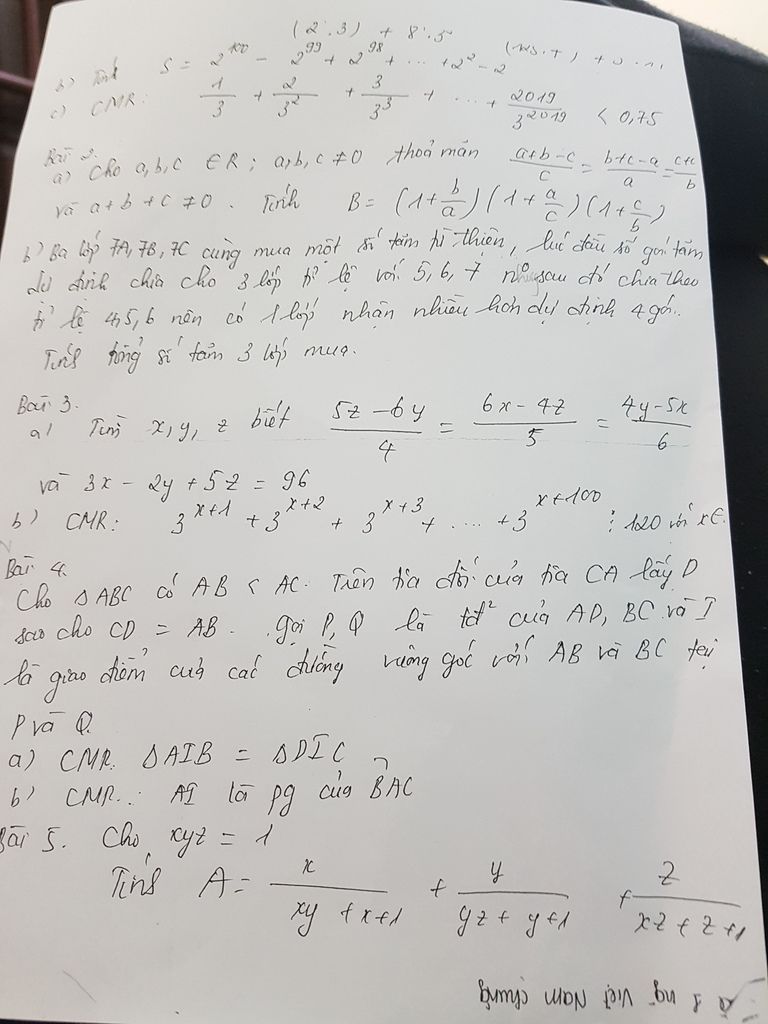 (2².3) + 8⁴.5
b) Tính S = 2^100 - 2^99 + 2^98 + ... + 2^2 - 2
c) CMR: 1/3 + 2/3^2 + 3/3^3 + ... + 2019/3^2019 < 0,75
Bài 2.
a) Cho a,b,c ∈ R; a,b,c ≠ 0 thoả mãn (a+b-c)/c = (b+c-a)/a = (c+a)/b
và a+b+c ≠ 0. Tính B = (1+b/a)(1+a/c)(1+c/b)
b) Ba lớp 7A, 7B, 7C cùng mua một số tăm từ thiện, lúc đầu số gói tăm
dự định chia cho 3 lớp tỉ lệ với 5, 6, 7 sau đó chia theo
tỉ lệ 4,5,6 nên có 1 lớp nhận nhiều hơn dự định 4 gói.
Tính tổng số tăm 3 lớp mua.
Bài 3.
a) Tìm x, y, z biết (5z-6y)/4 = (6x-4z)/5 = (4y-5x)/6
và 3x - 2y + 5z = 96
b) CMR: 3^(x+1) + 3^(x+2) + 3^(x+3) + ... + 3^(x+100) ⋮ 120 với x∈
Bài 4.
Cho ΔABC có AB < AC. Trên tia đối của tia CA lấy D
sao cho CD = AB. gọi P, Q là tđ² của AD, BC và I
là giao điểm của các đường vuông góc với AB và BC tại
P và Q.
a) CMR. ΔAIB = ΔDIC
b) CMR: AI là pg của BAC
Bài 5. Cho xyz = 1
Tính A = x/(xy+x+1) + y/(yz+y+1) + z/(xz+z+1)
ng Việt Nam chung